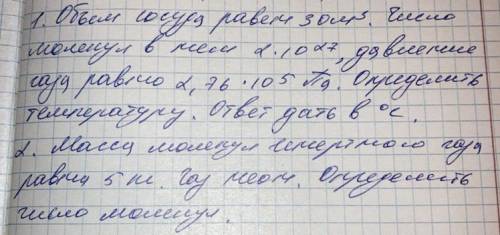 1. Объем сосуда равен 30м³. Число
молекул в нем 2·10²⁷, давление
газа равно 2,76·10⁵ Па. Определить
температуру. Ответ дать в °С.
2. Масса молекул инертного газа
равна 5 кг. Газ неон. Определить
число молекул.